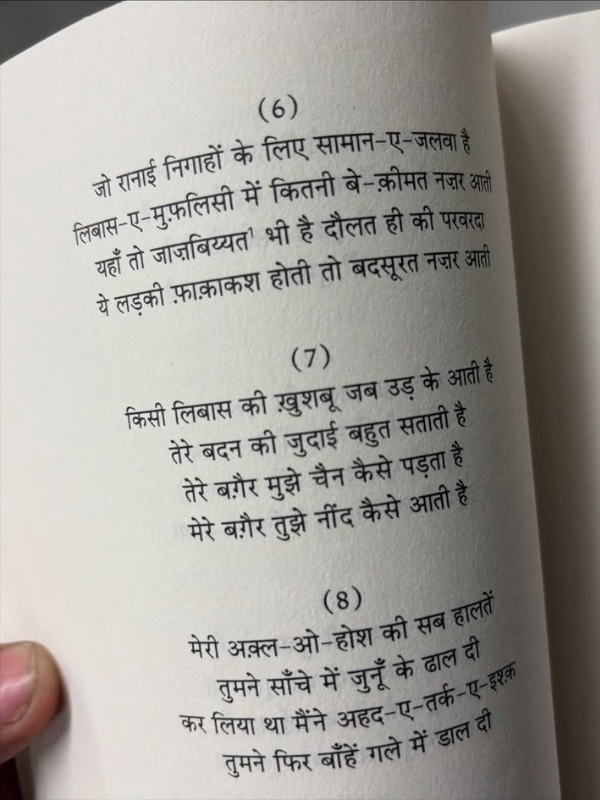 (6)
जो रानाई निगाहों के लिए सामान-ए-जलवा है
लिबास-ए-मुफ़लिसी में कितनी बे-क़ीमत नज़र आती
यहाँ तो जाज़बिय्यत¹ भी है दौलत ही की परवरदा
ये लड़की फ़ाक़ाकश होती तो बदसूरत नज़र आती
(7)
किसी लिबास की ख़ुशबू जब उड़ के आती है
तेरे बदन की जुदाई बहुत सताती है
तेरे बग़ैर मुझे चैन कैसे पड़ता है
मेरे बग़ैर तुझे नींद कैसे आती है
(8)
मेरी अक़्ल-ओ-होश की सब हालतें
तुमने साँचे में जुनूँ के ढाल दी
कर लिया था मैंने अहद-ए-तर्क-ए-इश्क़
तुमने फिर बाँहें गले में डाल दी